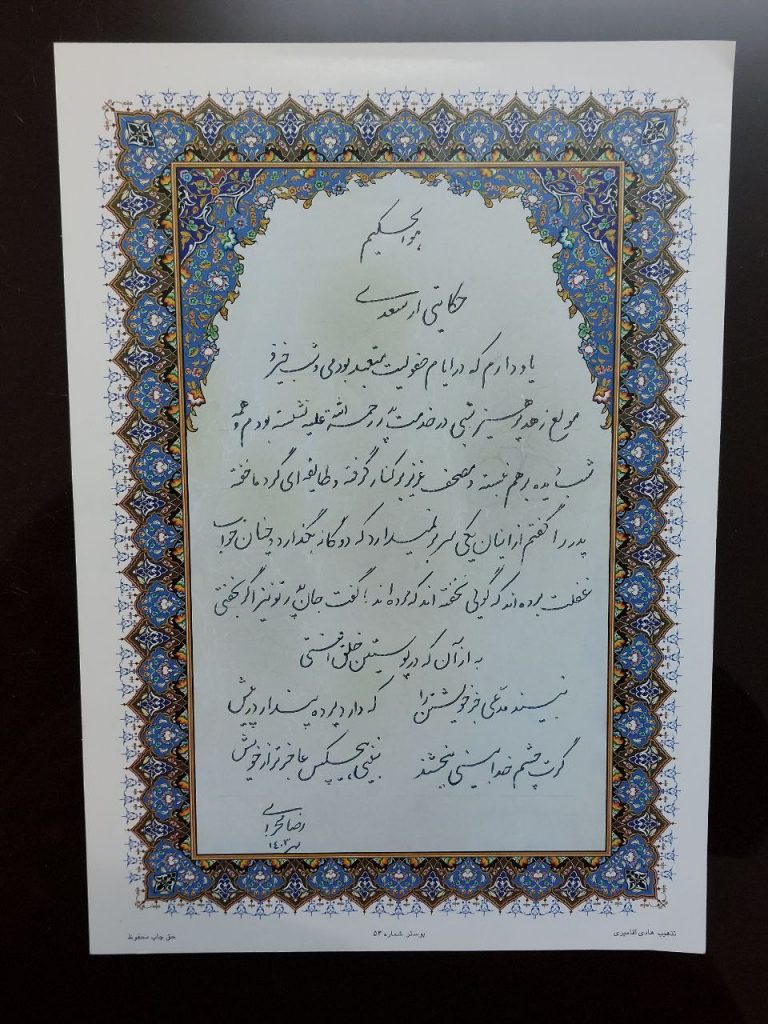 هو الحکیم
حکایتی از سعدی
یاد دارم که در ایام طفولیت متعبد بودمی و شب خیز و
مولع زهد و پرهیز شبی در خدمت پدر رحمة الله علیه نشسته بودم و همه
شب دیده بر هم نبسته و مصحف عزیز بر کنار گرفته و طایفه ای گرد ما خفته
پدر را گفتم از اینان یکی سر بر نمیدارد که دوگانه بگذارد و چنان خواب
غفلت برده اند که گویی نخفته اند که مرده اند؛ گفت جان پدر تو نیز اگر بخفتی
به از آن که در پوستین خلق افتی
نبیند مدعی جز خویشتن را که دارد پرده پندار در پیش
گرت چشم خدا بینی ببخشند نبینی هیچکس عاجزتر از خویش
مهر ۱۴۰۳
تذهیب هادی آقامیری
پوستر شماره ۵۴
حق چاپ محفوظ